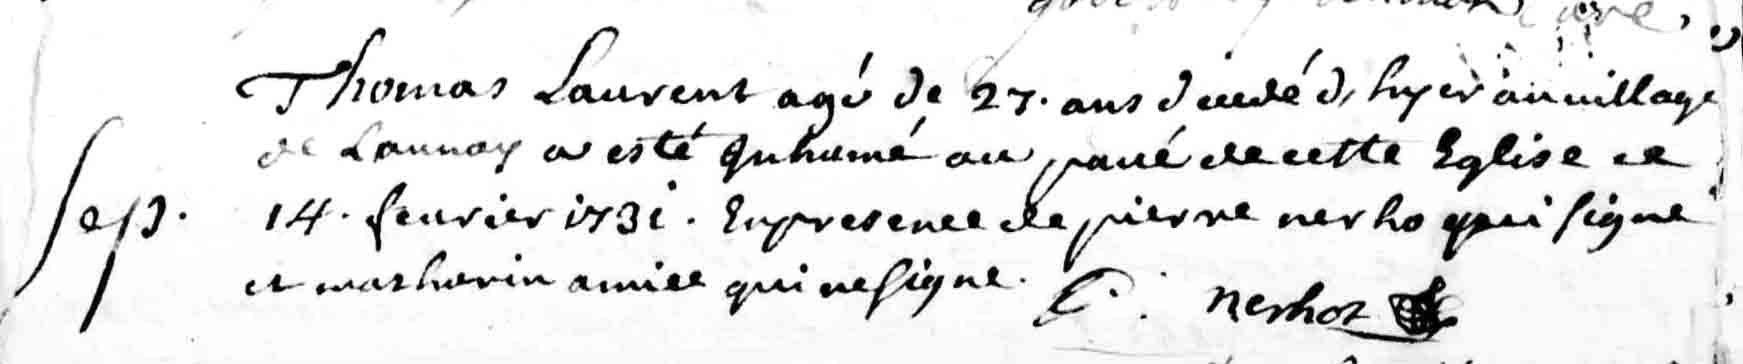 Thomas Laurent agé de 27. ans decedé d'hyer au village
de Launay a esté Inhumé au pavé de cette Eglise ce
Sep. 14. fevrier 1731. En presence de pierre nerho qui signe
et matherin amice qui ne signe. P. nerhoz